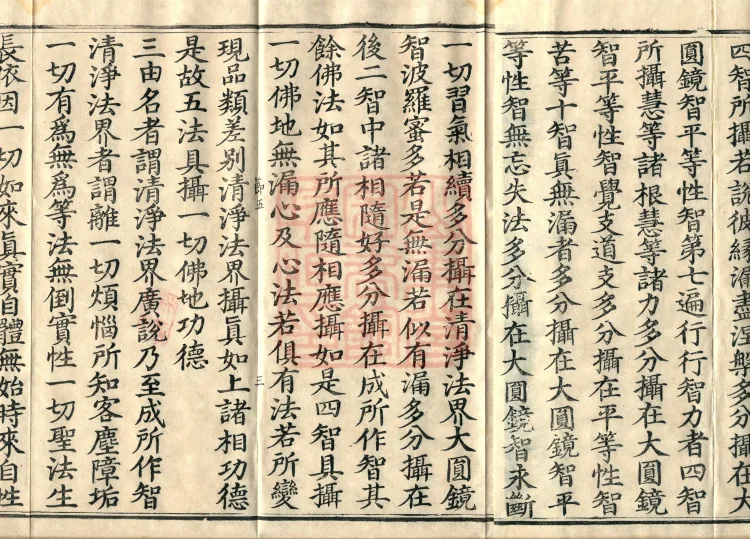 四智所攝若說彼緣漏盡注學多分攝在大
圓鏡智平等性智第七遍行行智力者四智
所攝慧等諸根慧等諸力多分攝在大圓鏡
智平等性智覺支道支多分攝在平等性智
苦等十智眞無漏者多分攝在大圓鏡智平
等性智無忘失法多分攝在大圓鏡智永斷
一切習氣相續多分攝在清淨法界大圓鏡
智波羅蜜多若是無漏若似有漏多分攝在
後二智中諸相隨好多分攝在成所作智其
餘佛法如其所應隨相應攝如是四智具攝
一切佛地無漏心及心法若俱有法若所變
節五
三
現品類差別清淨法界攝眞如上諸相功德
是故五法具攝一切佛地功德
三由名者謂清淨法界廣說乃至成所作智
清淨法界者謂離一切煩惱所知客塵障垢
一切有爲無爲等法無倒實性一切聖法生
長依因一切如來眞實自體無始時來自性